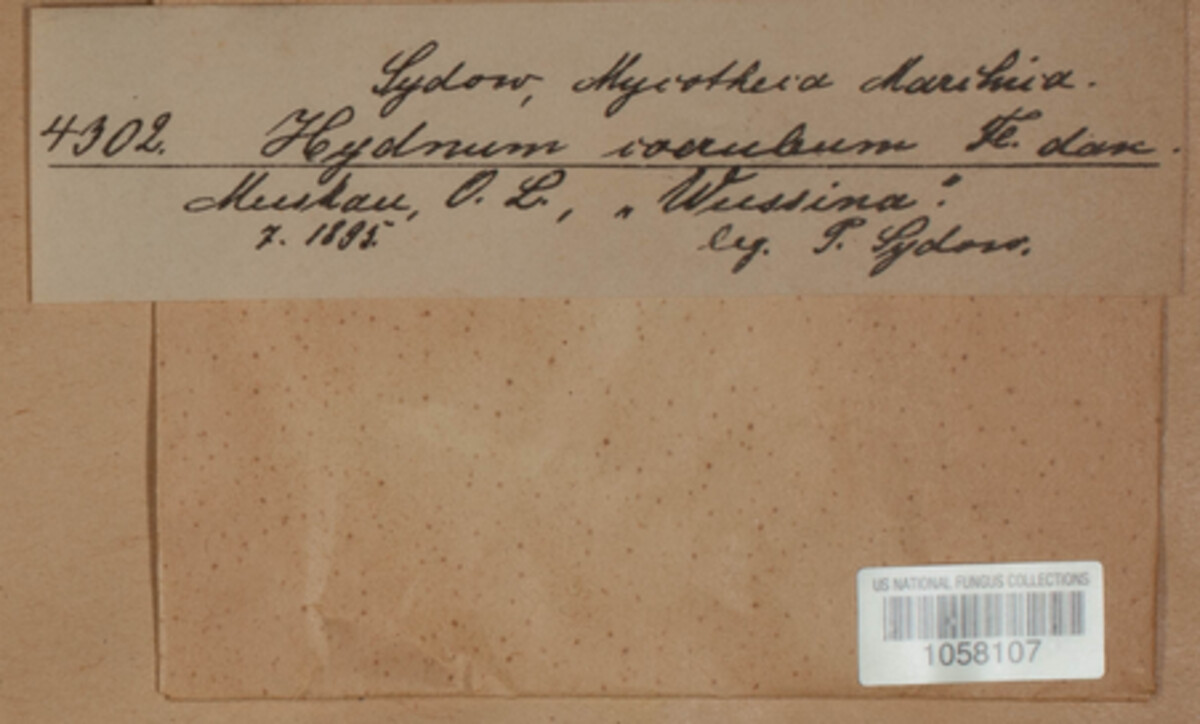 Sydow, Mycotheca Marchica.
4302. Hydnum coeruleum Fl. dan.
Muskau, O. L., „Wussina".
7. 1895. leg. P. Sydow.
US NATIONAL FUNGUS COLLECTIONS
1058107